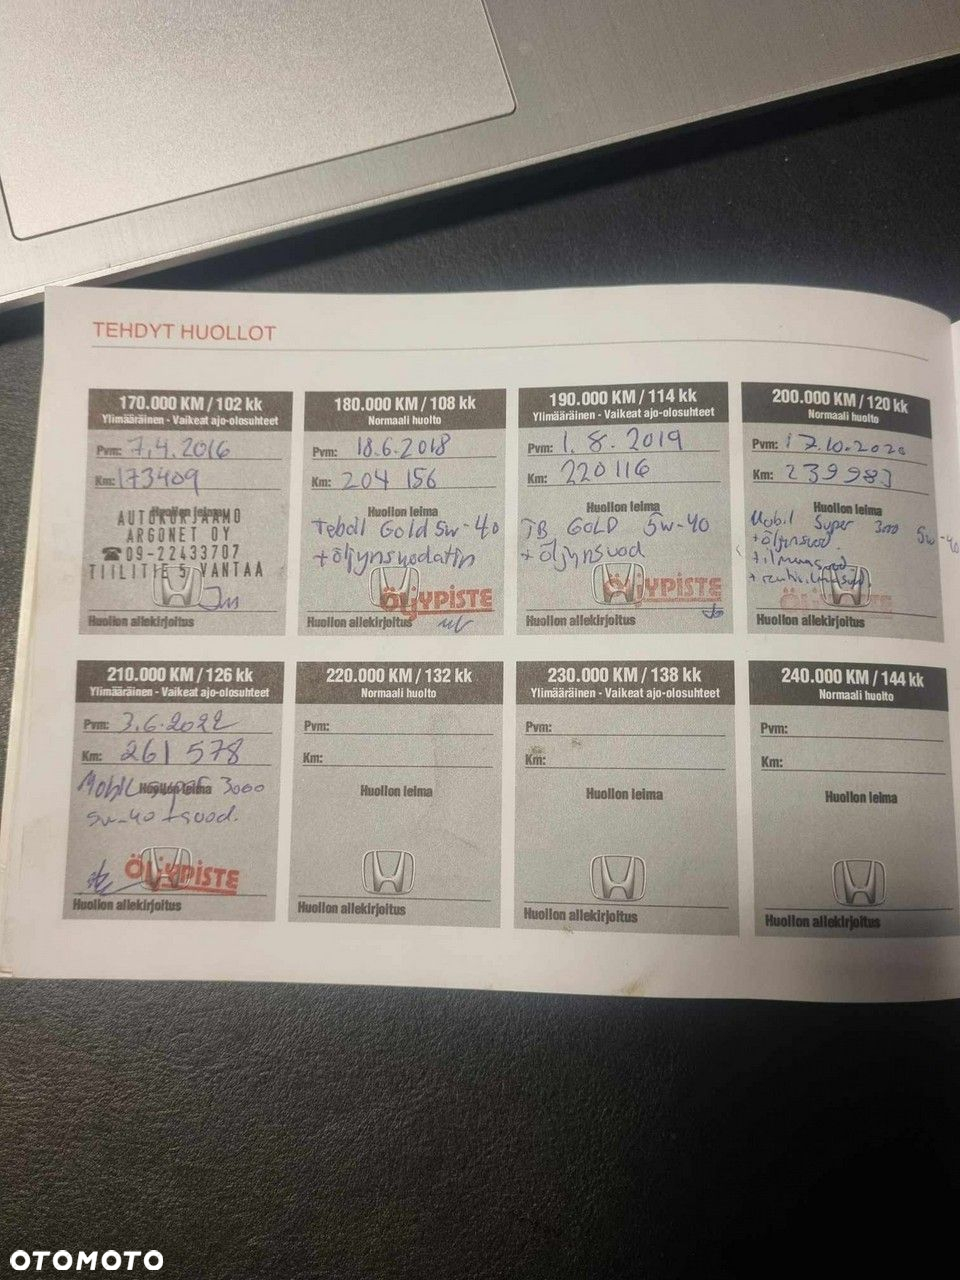 TEHDYT HUOLLOT
170.000 KM / 102 kk
Ylimääräinen - Vaikeat ajo-olosuhteet
Pvm: 7.4.2016
Km: 173409
Huollon leima
AUTOKORJAAMO
ARGONET OY
☎09-22433707
TIILITIE 5 VANTAA
Huollon allekirjoitus
180.000 KM / 108 kk
Normaali huolto
Pvm: 18.6.2018
Km: 204 156
Huollon leima
Teboil Gold 5w-40
+ öljynsuodatin
ÖLJYPISTE
Huollon allekirjoitus
190.000 KM / 114 kk
Ylimääräinen - Vaikeat ajo-olosuhteet
Pvm: 1.8.2019
Km: 220116
Huollon leima
TB GOLD 5w-40
+ öljynsuod
ÖLJYPISTE
Huollon allekirjoitus
200.000 KM / 120 kk
Normaali huolto
Pvm: 17.10.2020
Km: 239983
Huollon leima
Mobil Super 3000 5w-40
+ öljynsuod.
+ ilmansuod
ÖLJYPISTE
Huollon allekirjoitus
210.000 KM / 126 kk
Ylimääräinen - Vaikeat ajo-olosuhteet
Pvm: 3.6.2022
Km: 261 578
Huollon leima
Mobil super 3000
5w-40 + suod.
ÖLJYPISTE
Huollon allekirjoitus
220.000 KM / 132 kk
Normaali huolto
Pvm:
Km:
Huollon leima
Huollon allekirjoitus
230.000 KM / 138 kk
Ylimääräinen - Vaikeat ajo-olosuhteet
Pvm:
Km:
Huollon leima
Huollon allekirjoitus
240.000 KM / 144 kk
Normaali huolto
Pvm:
Km:
Huollon leima
Huollon allekirjoitus
OTOMOTO